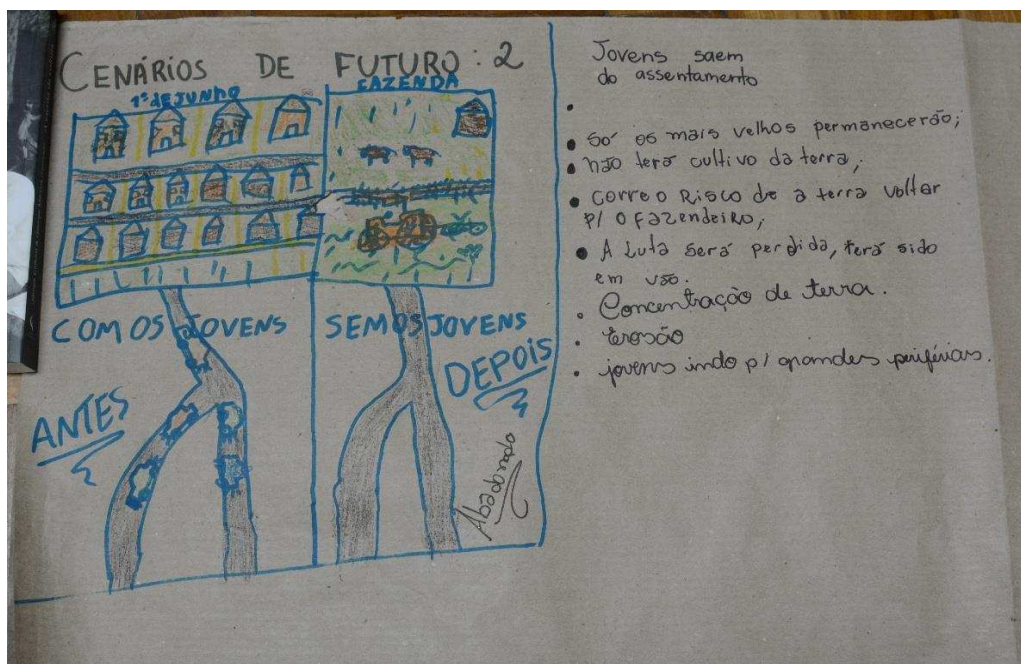 CENÁRIOS DE FUTURO: 2
1º DE JUNHO
FAZENDA
COM OS JOVENS
SEM OS JOVENS
ANTES
DEPOIS
Abagorado
Jovens saem
do assentamento
•
• Só os mais velhos permanecerão;
• não terá cultivo da terra;
• corre o Risco de a terra voltar
p/ o Fazendeiro;
• A Luta será perdida, terá sido
em vão.
• Concentração de terra.
• Erosão
• jovens indo p/ grandes periférias.